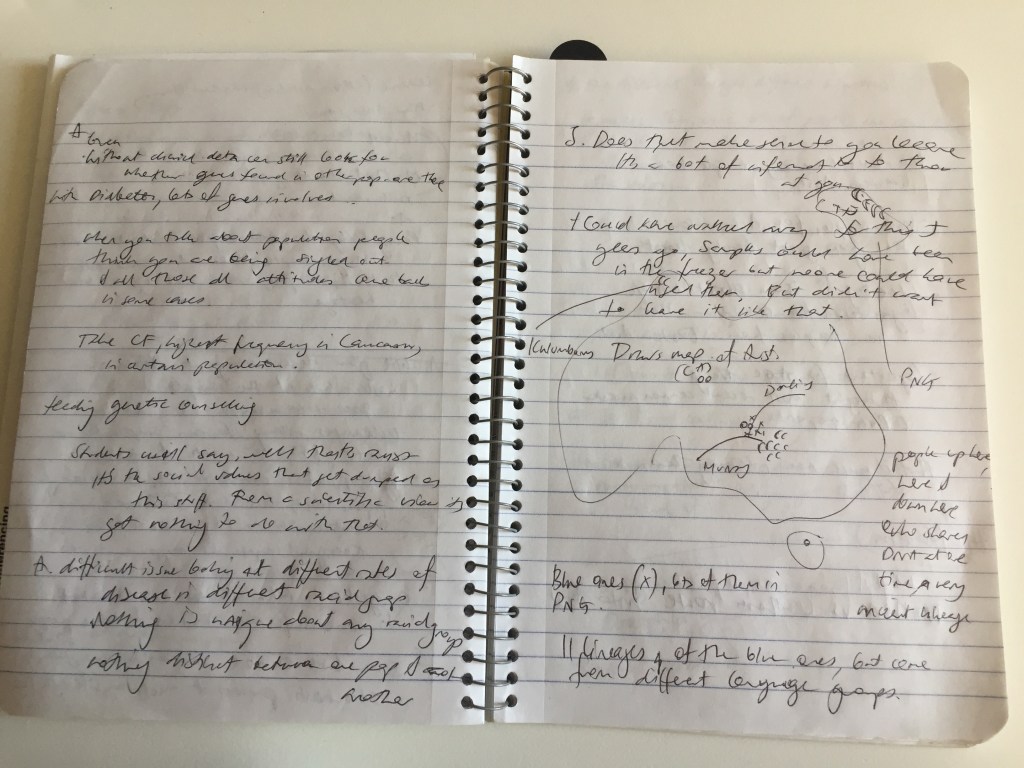 A
Given
without clinical data can still look for
whether genes found in other pop are there
with Diabetes, lots of genes involves.
when you talk about population people
think you are being singled out
& all those old attitudes come back
in some cases.
Take CF, highest frequency in Caucasians,
in certain population.
feeding genetic counselling
Students will say, well that's
it's the social values that get dumped on
this stuff. From a scientific view it's
got nothing to do with that.
A difficult issue looking at different rates of
disease in different racial group
Nothing is unique about any racial group
nothing distinct between one pop &
another
J. Does that make sense to you
It's a bit of
at you
I could have walked away this
years ago, samples could have been
in the freezer but no one could have
used them, But didn't want
to leave it like that.
Draws map of Aust.
PNG
Murray
people up here,
here &
down here
who shares
time a very
ancient lineage
Blue ones (X), lots of them in
PNG.
11 lineages of the blue ones, but come
from different language groups.